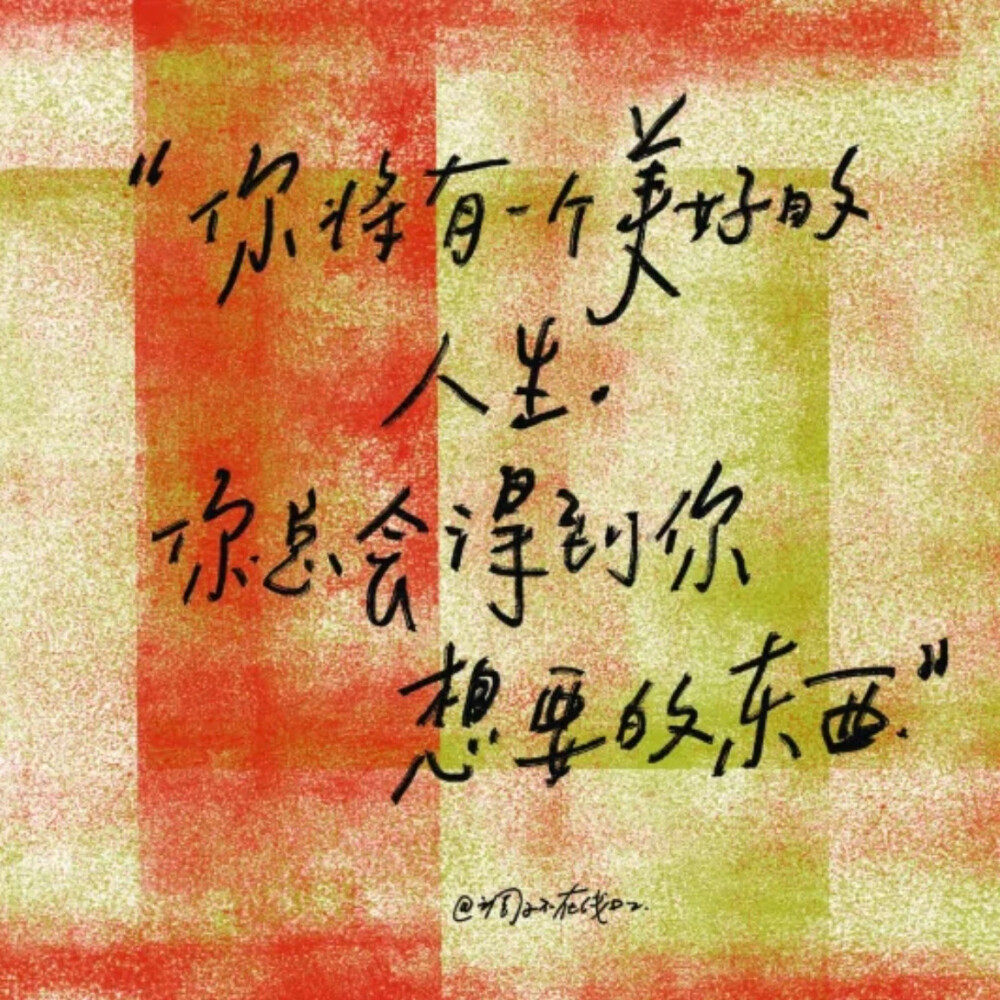 “你将有一个美好的
人生.
你总会得到你
想要的东西.”